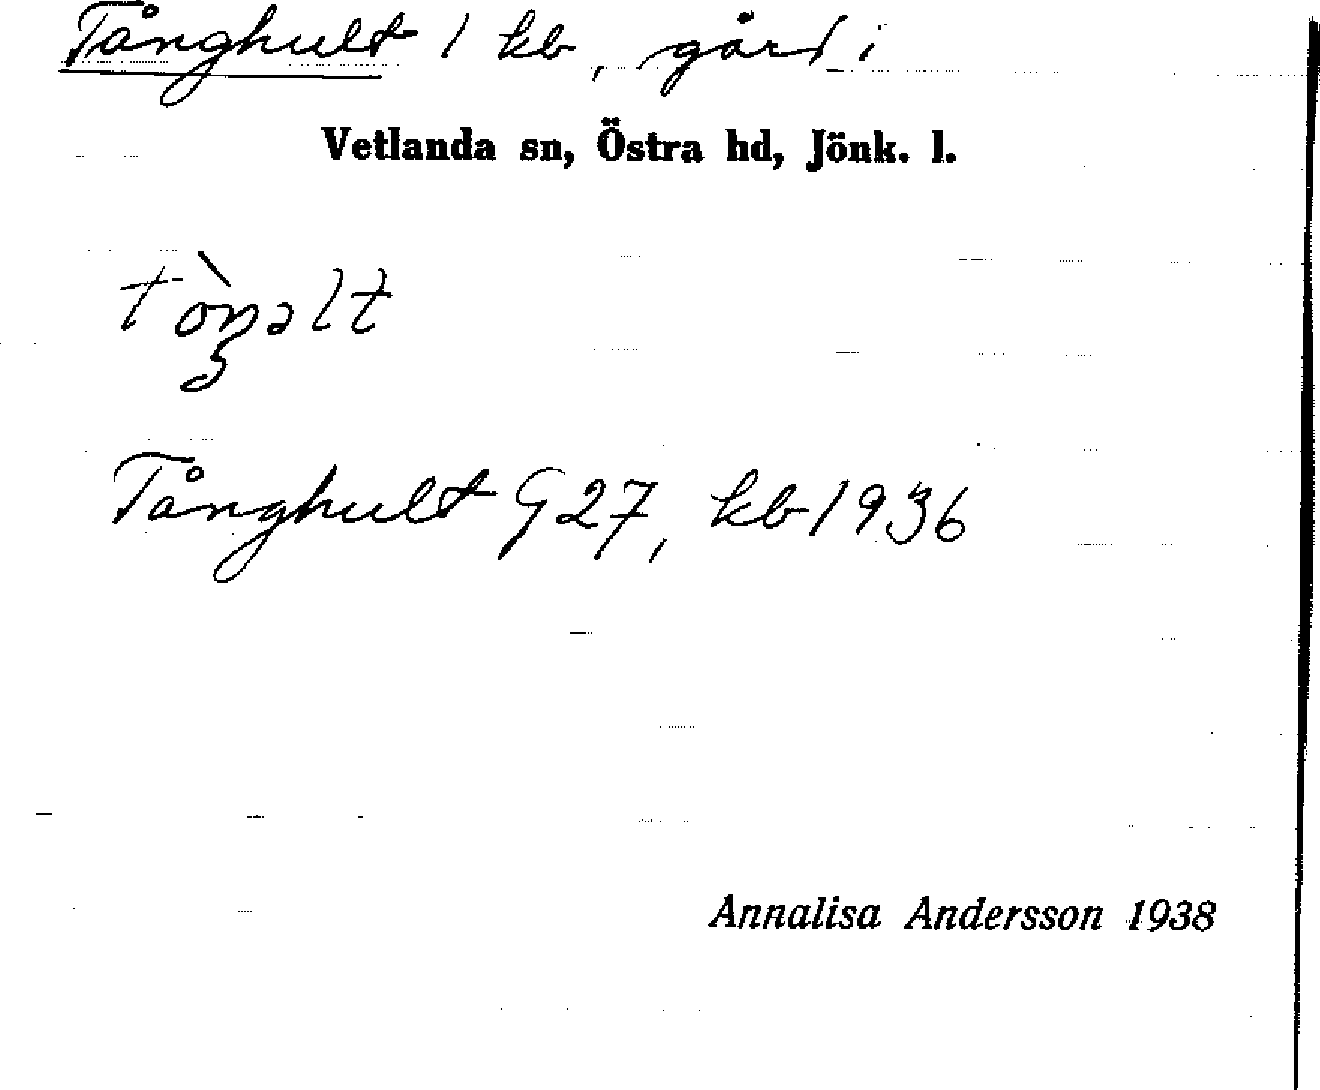 Tånghult 1 kb, gård i
Vetlanda sn, Östra hd, Jönk. l.
tòŋalt
Tånghult G27, kb 1936
Annalisa Andersson 1938